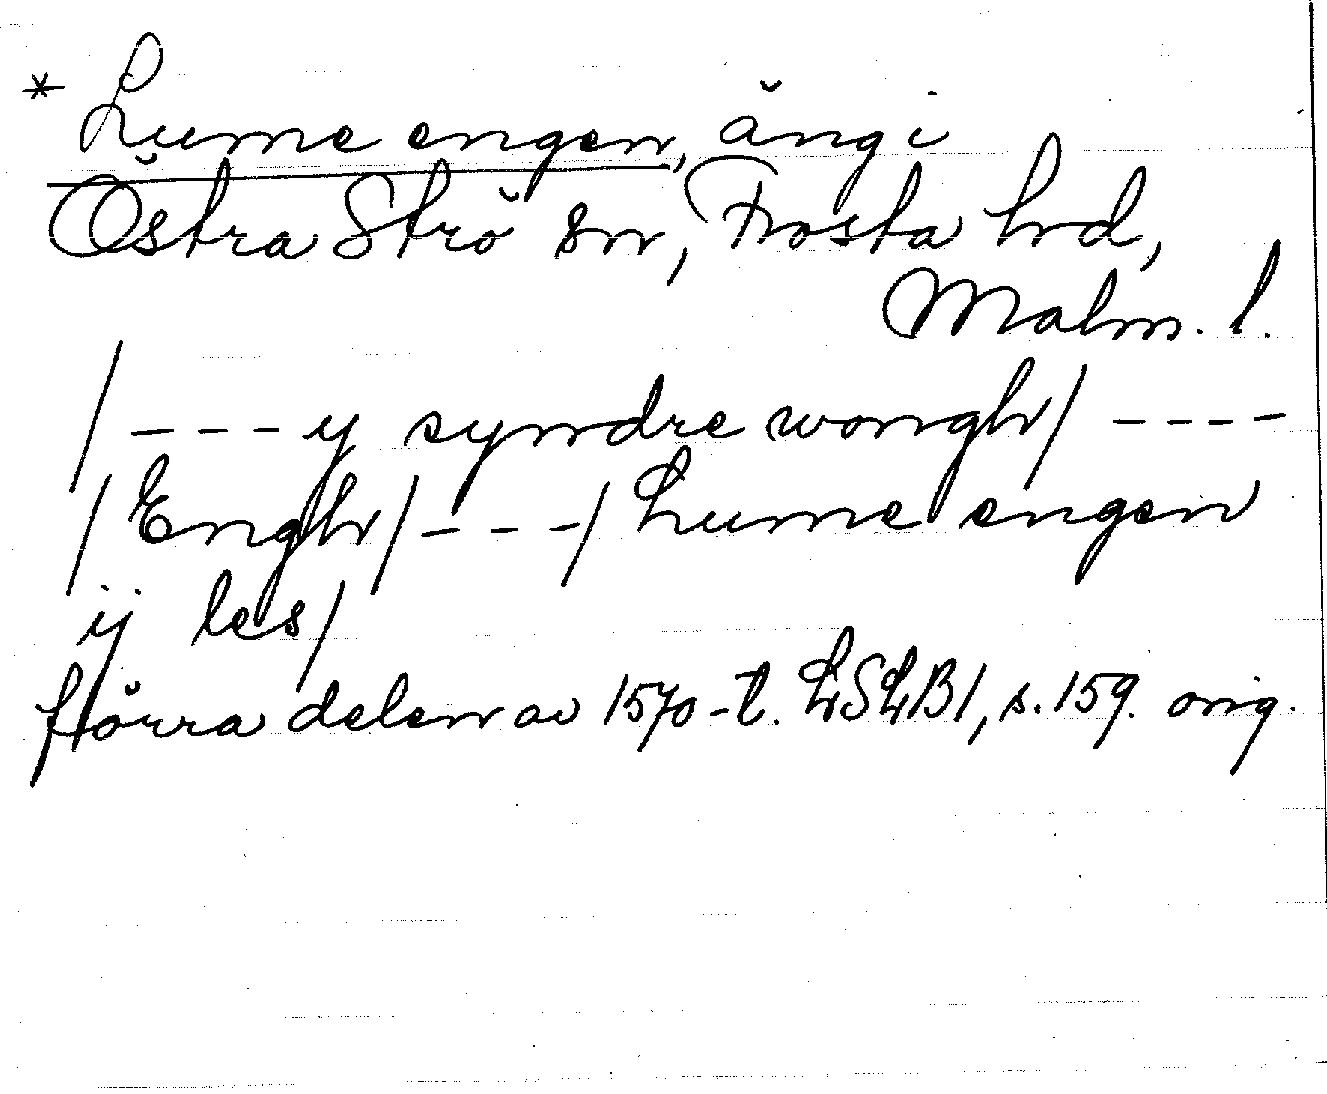 * Lume engen, äng i
Östra Strö sn, Frosta hd,
Malm. l.
/ - - - y syndre wongh / - - - -
/ Engh / - - - / Lume engen
ij les /
förra delen av 1570-t. LSLB1, s. 159. orig.